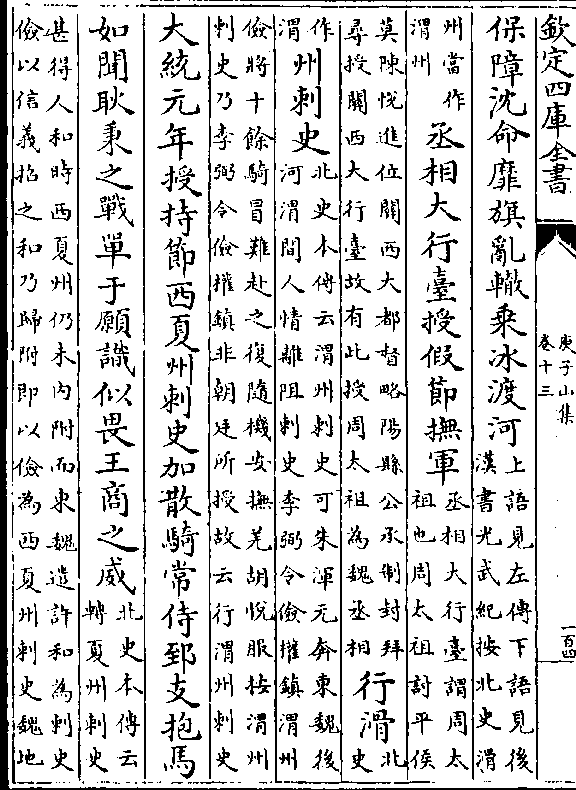 欽定四庫全書
庾子山集
卷十三
一百四
保障沈命靡旗亂轍乘冰渡河
上語見左傳下語見後
漢書光武紀按北史滑
州當作
渭州
丞相大行臺授假節撫軍
丞相大行臺謂周太
祖也周太祖討平侯
莫陳悅進位關西大都督略陽縣公承制封拜
尋授關西大行臺故有此授周太祖為魏丞相
行滑
北
史
作
渭
州刺史
北史本傳云渭州刺史可朱渾元奔東魏後
河渭間人情離阻刺史李弼令儉權鎮渭州
儉將十餘騎冒難赴之復隨機安撫羌胡悅服按渭州
刺史乃李弼令儉權鎮非朝廷所授故云行渭州刺史
大統元年授持節西夏州刺史加散騎常侍郅支抱馬
如聞耿秉之戰單于願識似畏王商之威
北史本傳云
轉夏州刺史
甚得人和時西夏州仍未內附而東魏遣許和為刺史
儉以信義招之和乃歸附即以儉為西夏州刺史魏地